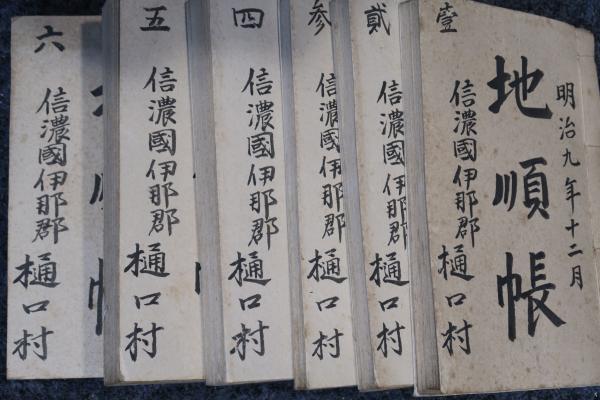 明治九年十二月
地順帳
壹
信濃國伊那郡
樋口村
貳
信濃國伊那郡
樋口村
参
信濃國伊那郡
樋口村
四
信濃國伊那郡
樋口村
五
信濃國伊那郡
樋口村
地順帳
六
信濃國伊那郡
樋口村